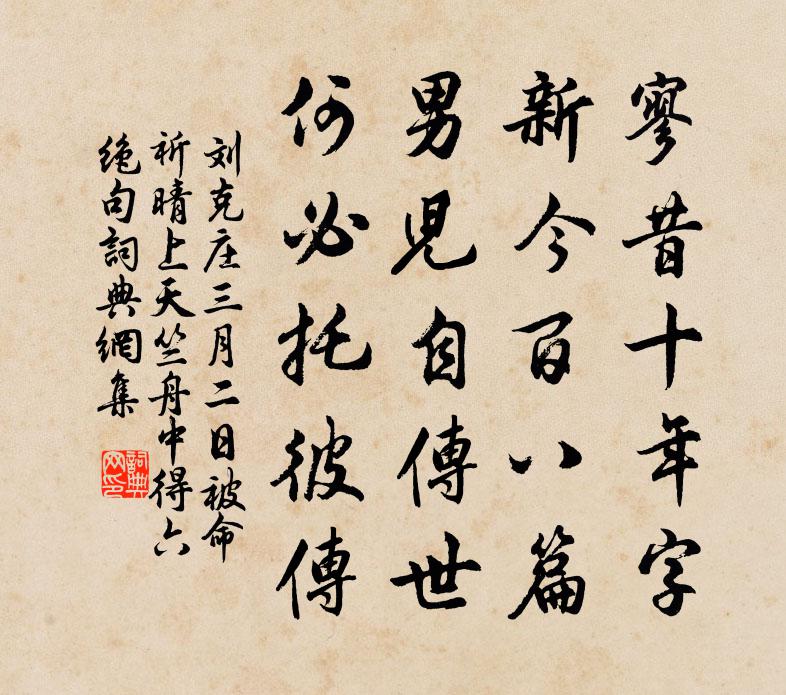 寥昔十年字
新今百八篇
男児自傳世
何必托彼傳
刘克庄三月二日被命
祈晴上天竺舟中得六
绝句詞典網集
詞典网印